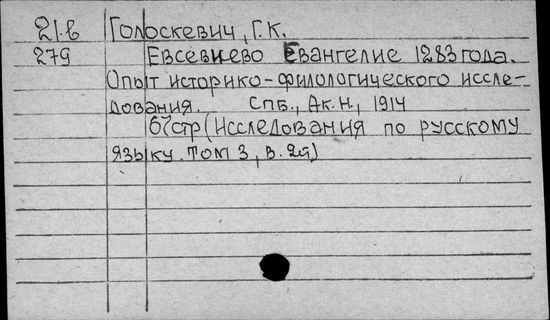 21.в Голоскевич, Г.К.
279 Евсевиево Евангелие 1283 года.
Опыт историко-филологического иссле-
дования. Спб., Ак.Н., 1914
67стр (Исследования по русскому
языку. том 3, в. 2й)